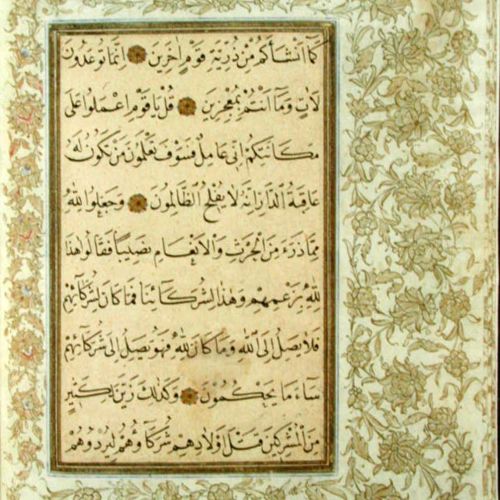 كَمَا أَنْشَأَكُمْ مِنْ ذُرِّيَّةِ قَوْمٍ آخَرِينَ إِنَّمَا تُوعَدُونَ
لَآتٍ وَمَا أَنْتُمْ بِمُعْجِزِينَ قُلْ يَا قَوْمِ اعْمَلُوا عَلَى
مَكَانَتِكُمْ إِنِّي عَامِلٌ فَسَوْفَ تَعْلَمُونَ مَنْ تَكُونُ لَهُ
عَاقِبَةُ الدَّارِ إِنَّهُ لَا يُفْلِحُ الظَّالِمُونَ وَجَعَلُوا لِلّٰهِ
مِمَّا ذَرَءَ مِنَ الْحَرْثِ وَالْأَنْعَامِ نَصِيبًا فَقَالُوا هٰذَا
لِلّٰهِ بِزَعْمِهِمْ وَهٰذَا لِشُرَكَائِنَا فَمَا كَانَ لِشُرَكَائِهِمْ
فَلَا يَصِلُ إِلَى اللّٰهِ وَمَا كَانَ لِلّٰهِ فَهُوَ يَصِلُ إِلَى شُرَكَائِهِمْ
سَاءَ مَا يَحْكُمُونَ وَكَذٰلِكَ زَيَّنَ لِكَثِيرٍ
مِنَ الْمُشْرِكِينَ قَتْلَ أَوْلَادِهِمْ شُرَكَاؤُهُمْ لِيُرْدُوهُمْ